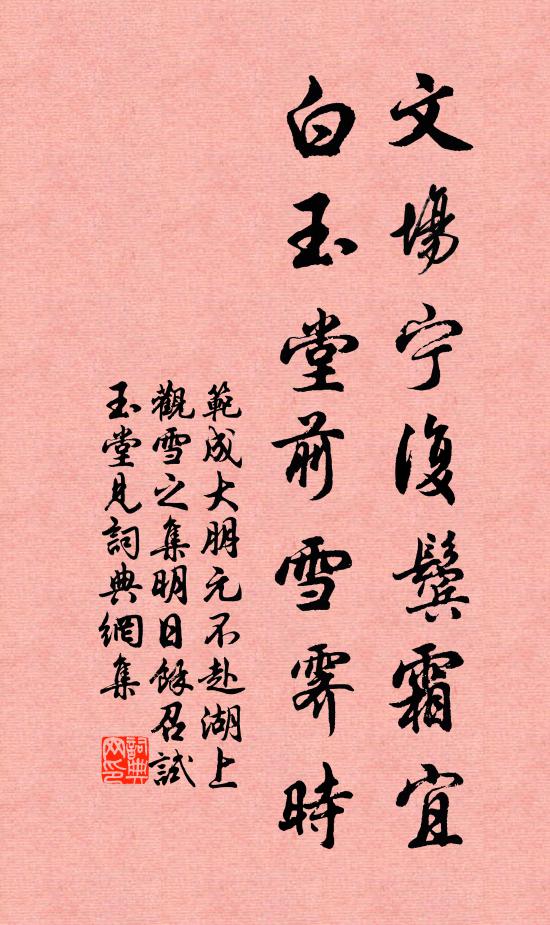 文場宁復鬢霜宜
白玉堂前雪霽時
範成大朋元不赴湖上
觀雪之集明日餘召試
玉堂見詞典網集
詞典网印